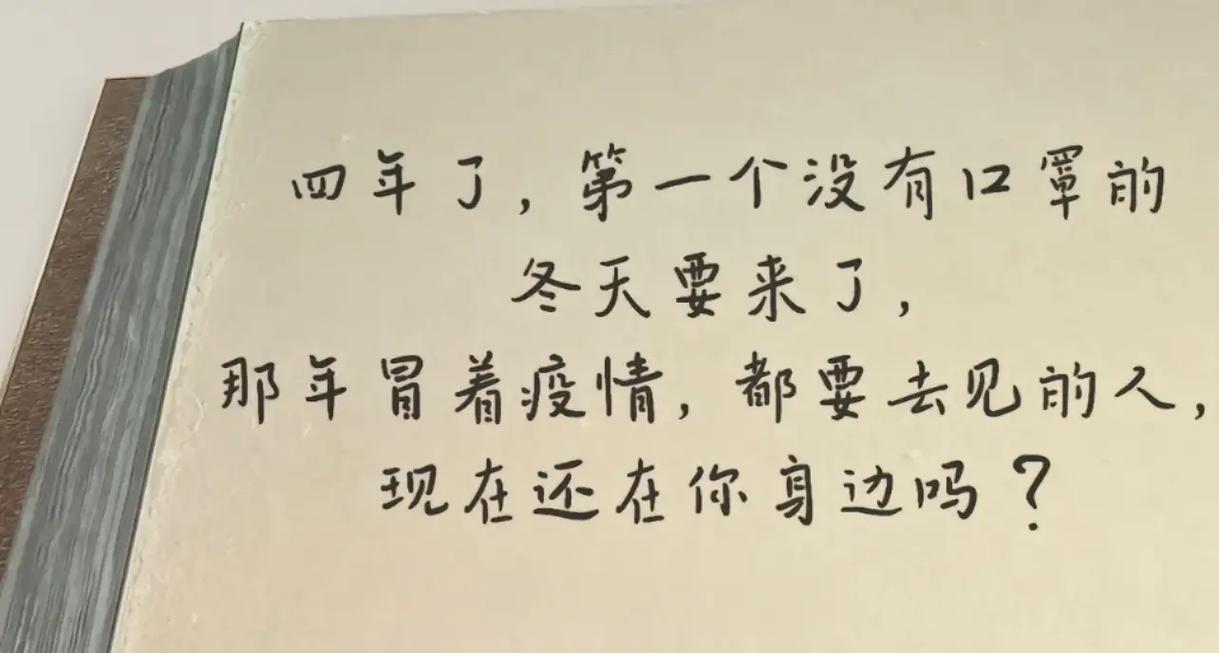 四年了，第一个没有口罩的
冬天要来了，
那年冒着疫情，都要去见的人，
现在还在你身边吗？